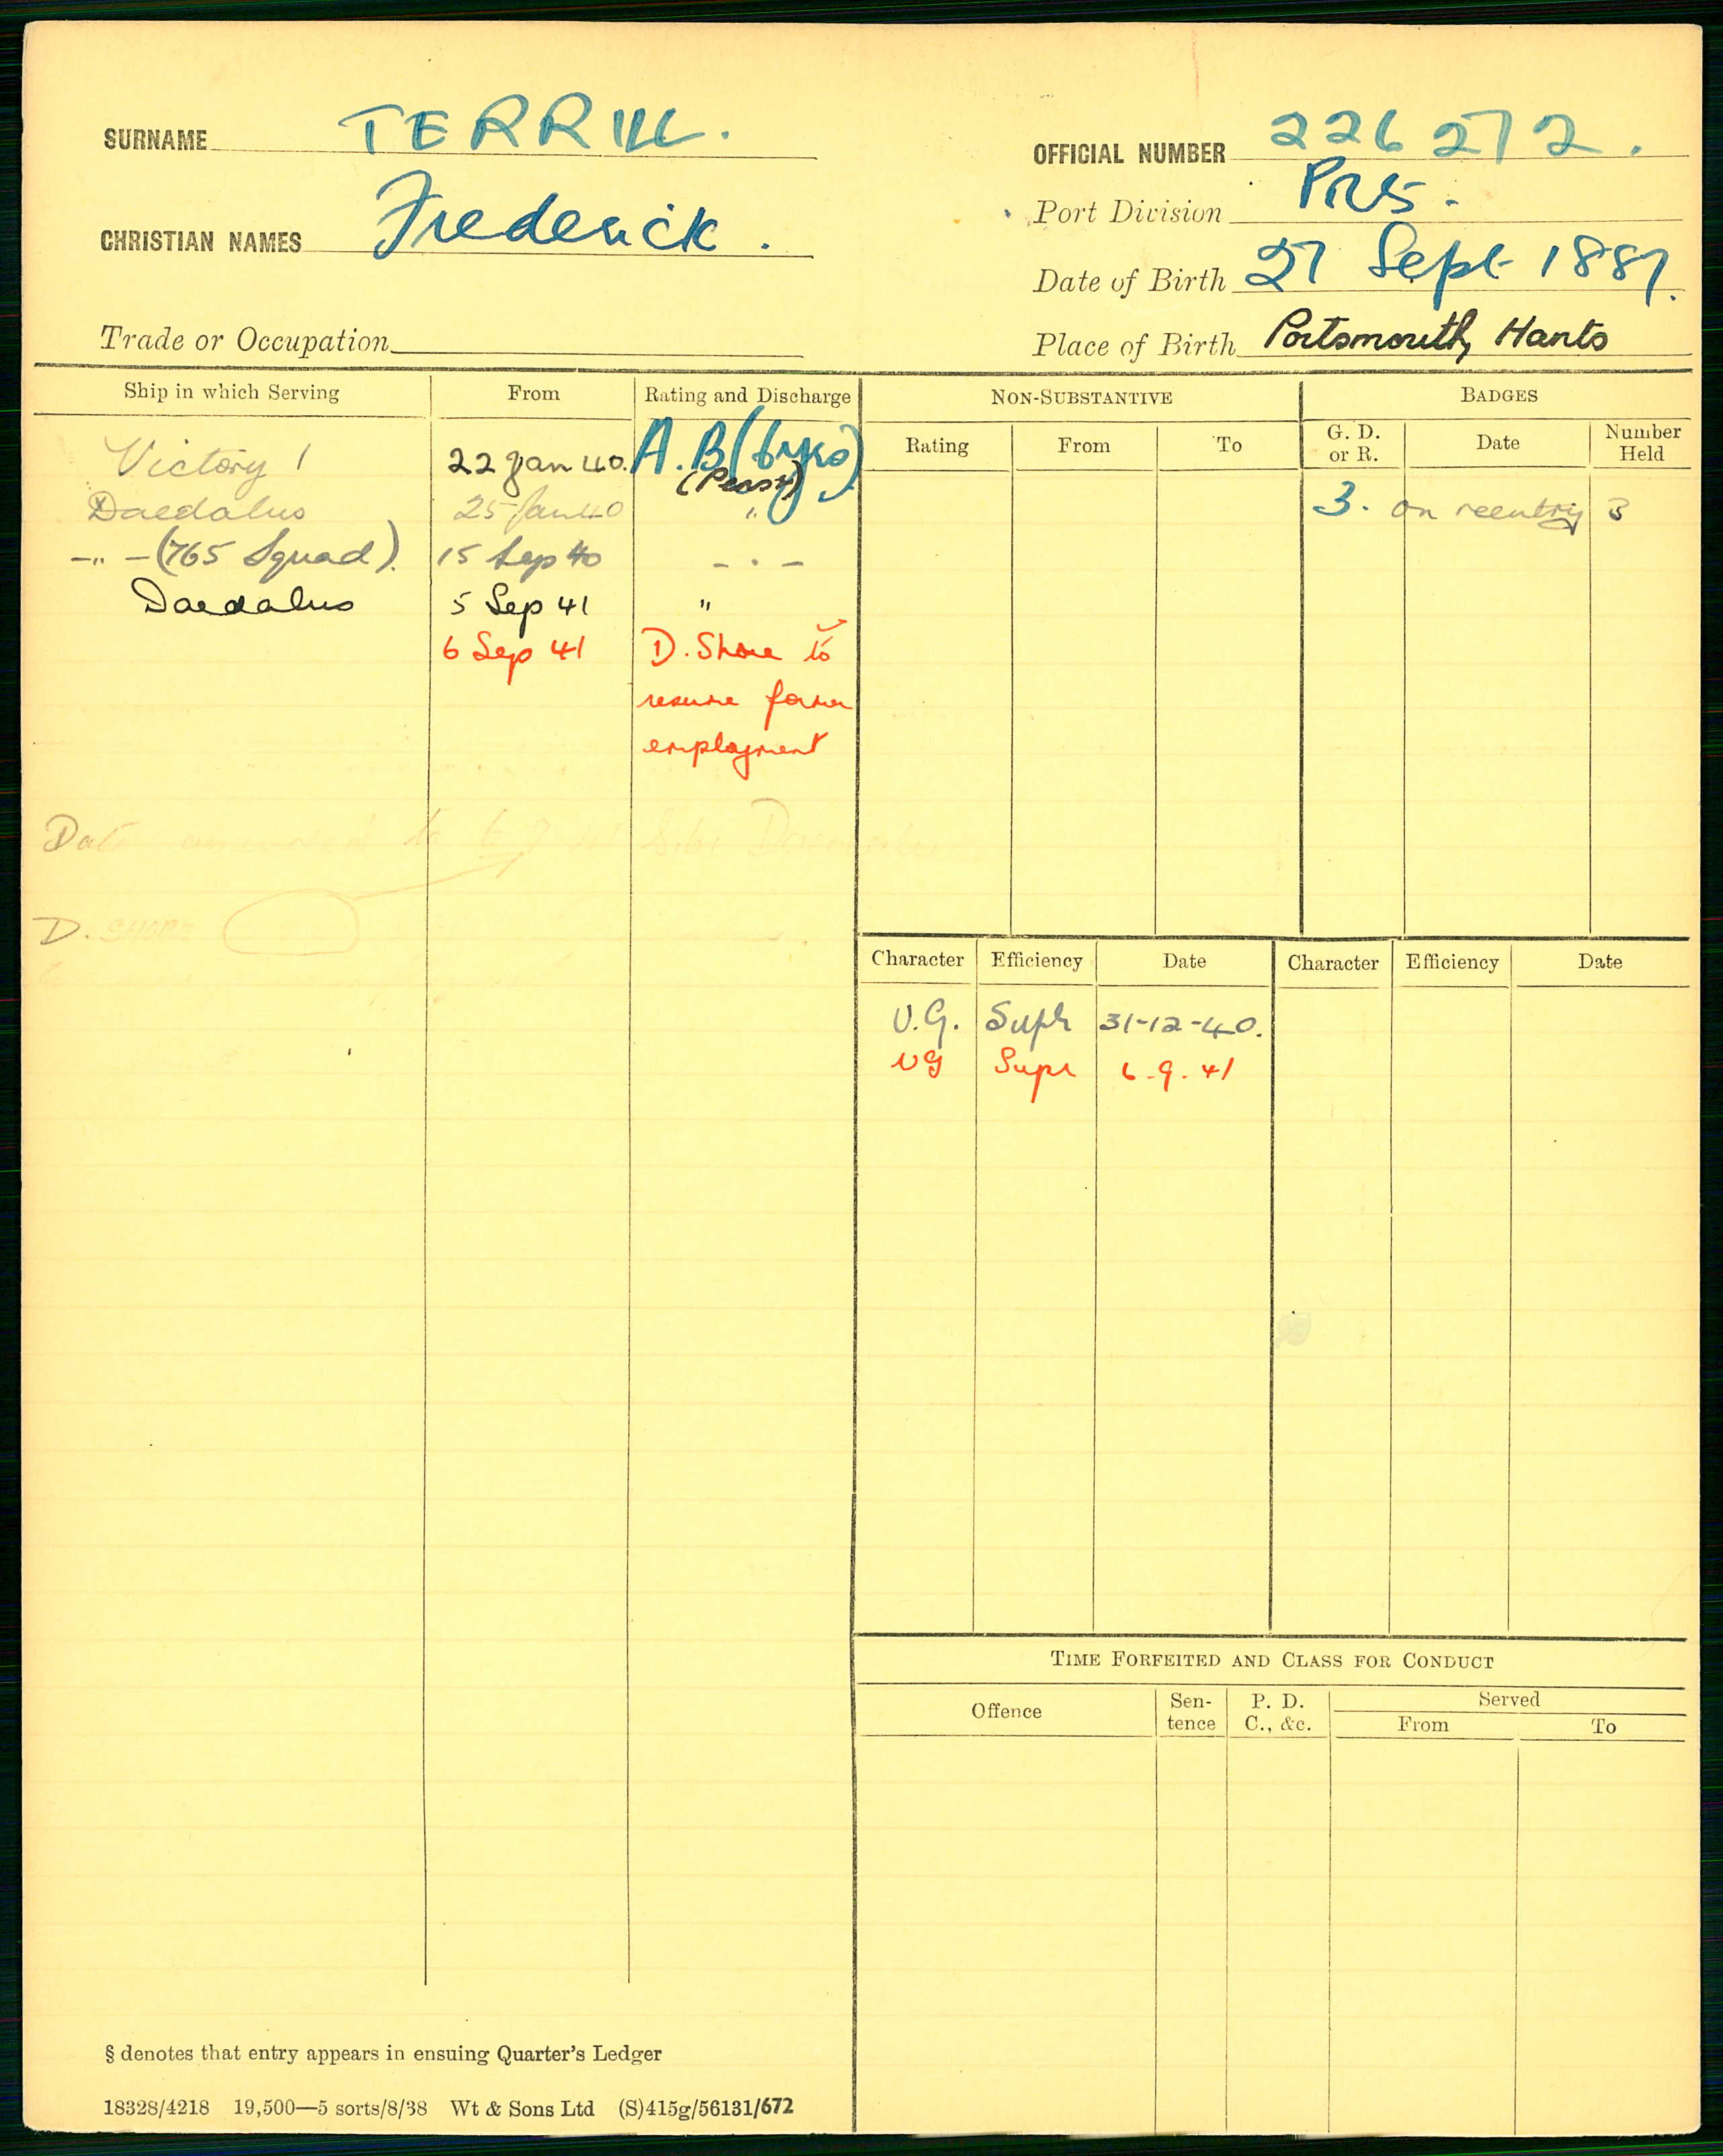 SURNAME TERRILL.
OFFICIAL NUMBER 226272.
Port Division
CHRISTIAN NAMES Frederick.
Date of Birth 27 Sept 1887.
Trade or Occupation
Place of Birth Portsmouth, Hants
Ship in which Serving From Rating and Discharge
NON-SUBSTANTIVE BADGES
Rating From To G. D. or R. Date Number Held
Victory 1 22 Jan 40. A.B (6yrs)
(Pensr)
Daedalus 25 Jan 40 "
3. on reentry 3
-"- (765 Squad). 15 Sep 40 - " -
Daedalus 5 Sep 41 "
6 Sep 41 D. Shore to
resume former
employment
Date amended to
D. SHORE
Character Efficiency Date Character Efficiency Date
V.G. Supr 31-12-40.
VG Supr 6.9.41
TIME FORFEITED AND CLASS FOR CONDUCT
Offence Sen-tence P. D. C., &c. Served
From To
§ denotes that entry appears in ensuing Quarter's Ledger
18328/4218 19,500—5 sorts/8/38 Wt & Sons Ltd (S)415g/56131/672